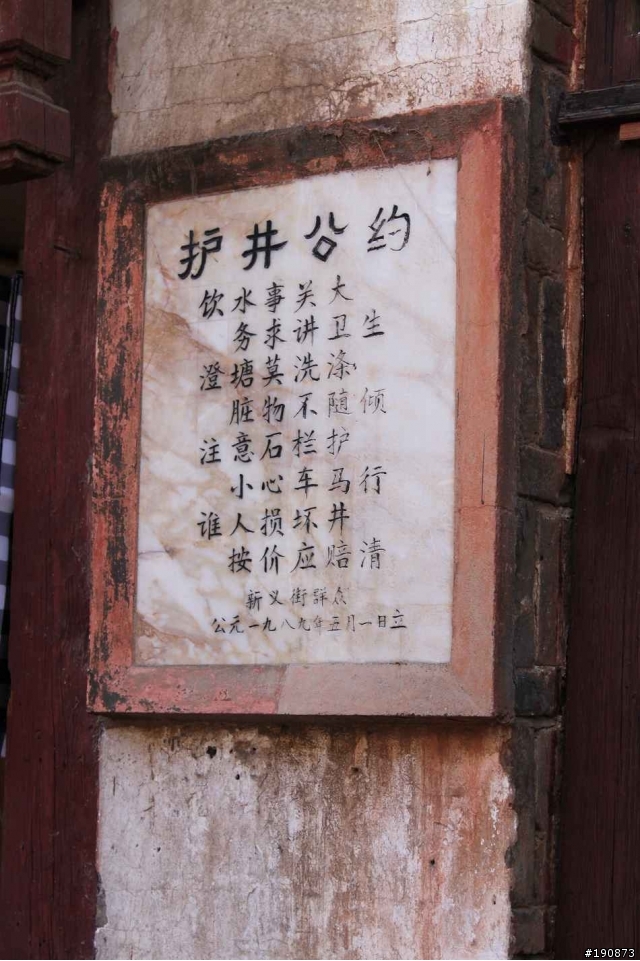 护井公约
饮水事关大
务求讲卫生
澄塘莫洗涤
脏物不随倾
注意石栏护
小心车马行
谁人损坏井
按价应赔清
新义街群众
公元一九八九年五月一日立
#190873